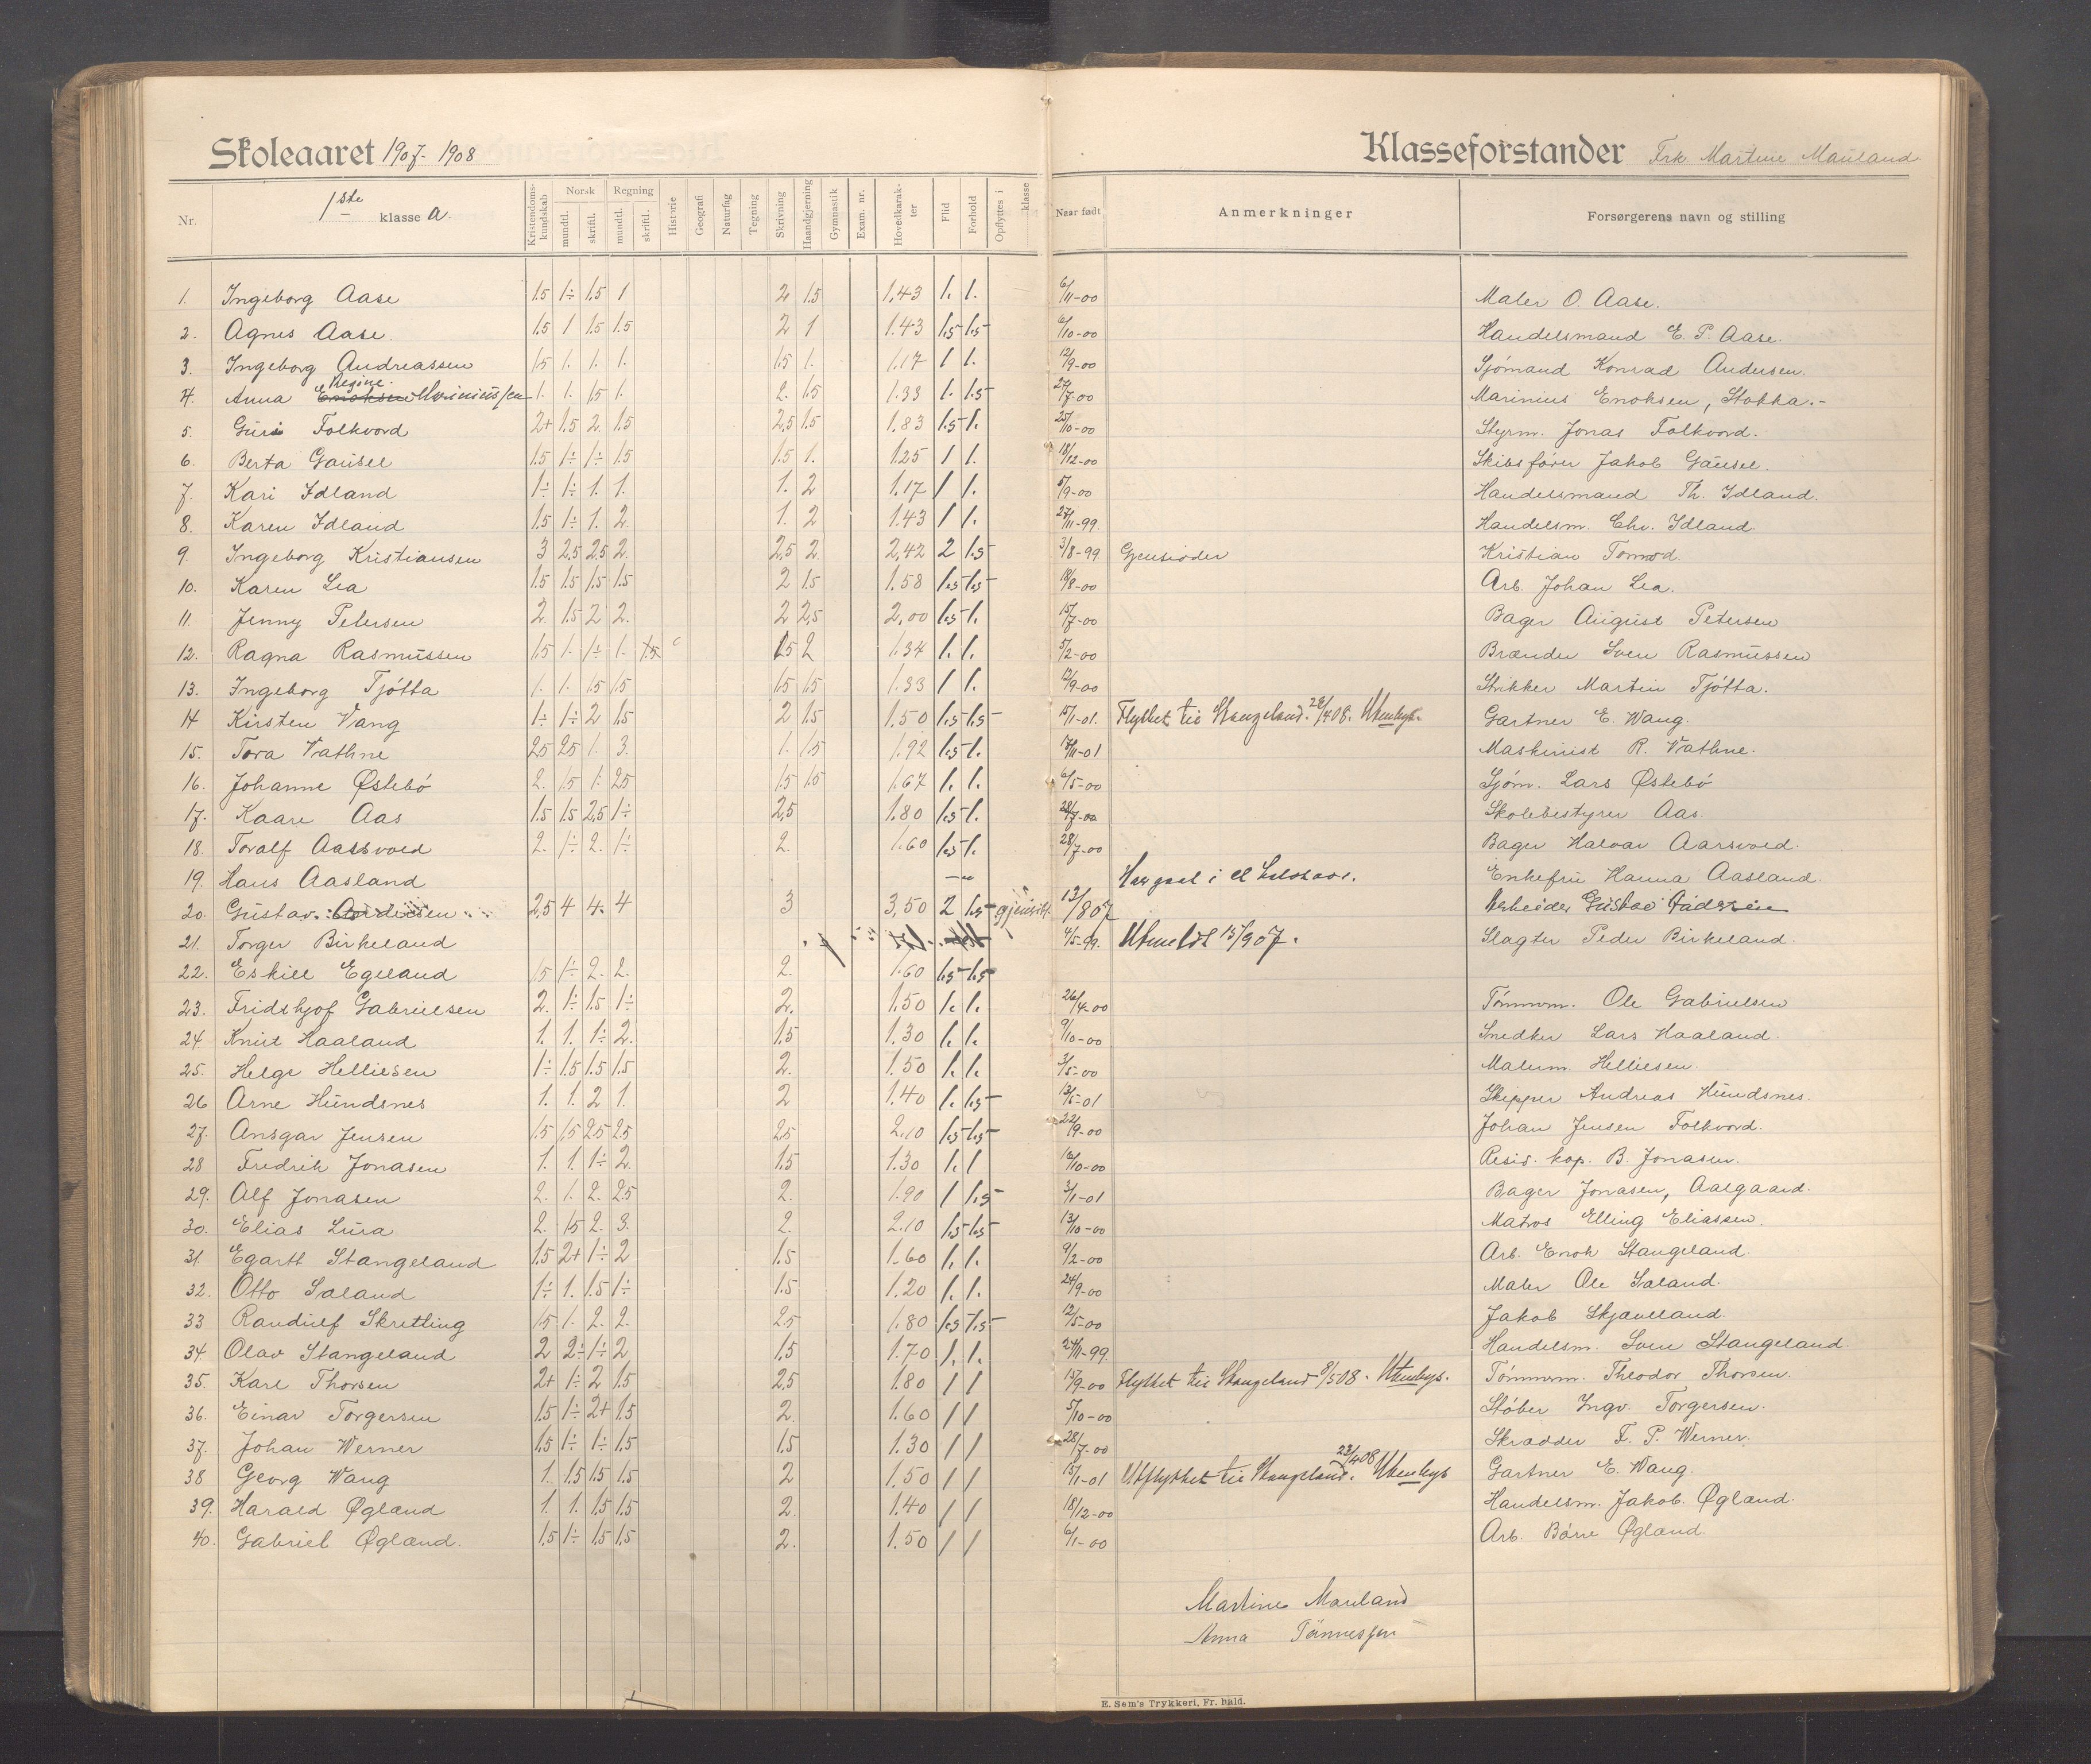 Skoleaaret 1907-1908
Klasseforstander Frk. Martine Mauland
Nr. 1ste klasse A. Kristendomskundskab Norsk mundtl. skriftl. Regning mundtl. skriftl. Historie Geografi Naturfag Tegning Skrivning Haandgjerning Gymnastik Exam. nr. Hovedkarakter Flid Forhold Opflyttes i klasse Naar født Anmerkninger Forsørgerens navn og stilling
1. Ingeborg Aase 1.5 1÷ 1.5 1 2 1.5 1.43 1. 1. 6/11-00 Maler O. Aase.
2. Agnes Aase 1.5 1 1.5 1.5 2 1 1.43 1.5 1.5 6/10-00 Handelsmand E. P. Aase.
3. Ingeborg Andreassen 1.5 1. 1. 1. 1.5 1. 1.17 1 1. 12/9-00 Sjømand Konrad Andersen.
Regine
4. Anna Enoksen Mariniussen 1. 1. 1.5 1. 2. 1.5 1.33 1. 1.5 /7-00 Marinius Enoksen, Stokka.-
5. Guri Folkvord 2+ 1.5 2. 1.5 2,5 1.5 1.83 1.5 1. 25/10-00 Styrm. Jonas Folkvord.
6. Berta Gausel 1.5 1÷ 1÷ 1.5 1.5 1. 1.25 1 1. 18/12-00 Skibsfører Jakob Gausel.
7. Kari Idland 1÷ 1÷ 1. 1. 1. 2 1.17 1 1. 5/9-00 Handelsmand Th. Idland.
8. Karen Idland 1.5 1÷ 1. 2. 1. 2 1.43 1 1. /11-99. Handelsm. Chr. Idland
9. Ingeborg Kristiansen 3 2.5 2.5 2. 2,5 2. 2,42 2 1.5 3/8-99 Gjensidder Kristian Tomod
10. Karen Lea 1.5 1.5 1.5 1.5 2 1.5 1.58 1.5 1.5 18/8-00 Arb. Johan Lea.
11. Jenny Petersen 2. 1.5 2 2. 2 2,5 2,00 1.5 1. 15/7-00 Bager August Petersen
12. Ragna Rasmussen 1.5 1. 1÷ 1. 1.5 1.5 2 1.34 1. 1. 5/2-00 Brænder Sven Rasmussen
13. Ingeborg Tjøtta 1. 1. 1.5 1.5 1.5 1.5 1.33 1 1. 12/9-00 Strikker Martin Tjøtta.
14 Kirsten Vang 1÷ 1÷ 2 1.5 2 1.5 1.50 1.5 1.5 15/1-01. Flyttet til Stangeland. 28/4 08. Utenbys. Gartner E. Wang.
15. Tora Vathne 2.5 2.5 1. 3. 1. 1.5 1.92 1.5 1. 17/11-01 Maskinist R. Vathne.
16. Johanne Østebø 2. 1.5 1. 2.5 1.5 1.5 1.67 1. 1. 6/5-00 Sjøm. Lars Østebø
17. Kaare Aas 1.5 1.5 2.5 1÷ 2,5 1.80 1.5 1. 28/7-00 Skolebestyrer Aas.
18. Toralf Aarsvold 2. 1÷ 2. 1÷ 2. 1.60 1.5 1. 28/7-00 Bager Halvar Aarsvold.
19. Hans Aasland Enkefru Hanna Aasland.
20. Gustav Andersen 2,5 4 4. 4 3 3,50 2 1.5 13/8 07 Arbeider Gustav
21. Torger Birkeland 4/5-99. Utmeldt 15/9 07. Slagter Peder Birkeland.
22. Eskill Egeland 1.5 1÷ 2. 2. 2. 1.60 1.5 1.5
23. Fridthjof Gabrielsen 2. 1÷ 1.5 1÷ 2. 1.50 1. 1. 26/4-00 Tømmerm. Ole Gabrielsen
24. Knut Haaland 1. 1. 1÷ 2. 1.5 1.30 1. 1. 9/10-00 Snedker Lars Haaland.
25. Helge Helliesen 1÷ 1.5 1.5 1.5 2. 1.50 1. 1. 3/5-00 Malerm. Helliesen.
26 Arne Hundsnes 1. 1. 2 1. 2 1.40 1. 1.5 13/5-01 Skipper Andreas Hundsnes.
27. Ansgar Jensen 1.5 1.5 2.5 2.5 2.5 2.10 1.5 1.5 22/9-00 Johan Jensen Folkvord.
28 Fredrik Jonasen 1. 1. 1÷ 2. 1.5 1.30 1. 1 16/10-00 Resid. kap. B. Jonasen.
29. Alf Jonasen 2. 1. 2. 2.5 2. 1.90 1 1.5 3/1-01 Bager Jonasen, Aalgaard.
30. Elias Lura 2. 1.5 2. 3. 2. 2.10 1.5 1.5 13/10-00 Matros Elling Eliassen.
31. Egartt Stangeland 1.5 2+ 1÷ 2 1.5 1.60 1. 1. 9/2-00 Arb. Enok Stangeland.
32. Otto Saland 1÷ 1. 1.5 1÷ 1.5 1.20 1. 1. 24/9-00 Maler Ole Saland.
33 Randulf Skretting 1.5 1. 2. 2. 2.5 1.80 1.5 1.5 12/5-00 Jakob Skjæveland.
34. Olav Stangeland 2 2÷ 1÷ 2 1.5 1.70 1. 1. 24/11-99 Handelsm. Sven Stangeland.
35. Karl Thorsen 2+ 1÷ 2 1.5 2,5 1.80 1 1 15/9-00 Flyttet til Stangeland 8/5 08. Utenbys. Tømmerm. Theodor Thorsen.
36. Einar Torgersen 1.5 1÷ 2+ 1.5 2. 1.60 1 1 5/10-00 Støber Ingv. Torgersen.
37. Johan Werner 1,5 1÷ 1÷ 1.5 1.5 1.30 1 1 28/7-00 Skrædder F. P. Werner.
38 Georg Wang 1. 1.5 1.5 1.5 2 1.50 1 1 15/1-01 Utflyttet til Stangeland. 23/4 08 Utenbys Gartner E. Wang.
39. Harald Øgland 1. 1. 1.5 1.5 2. 1.40 1 1 18/12-00 Handelsm. Jakob. Øgland.
40. Gabriel Øgland. 1.5 1÷ 1.5 1.5 2. 1.50 1 1 6/1-00 Arb. Børre Øgland.
Martine Mauland
Anna Tønnessen
E. Sem's Trykkeri, Fr. hald.